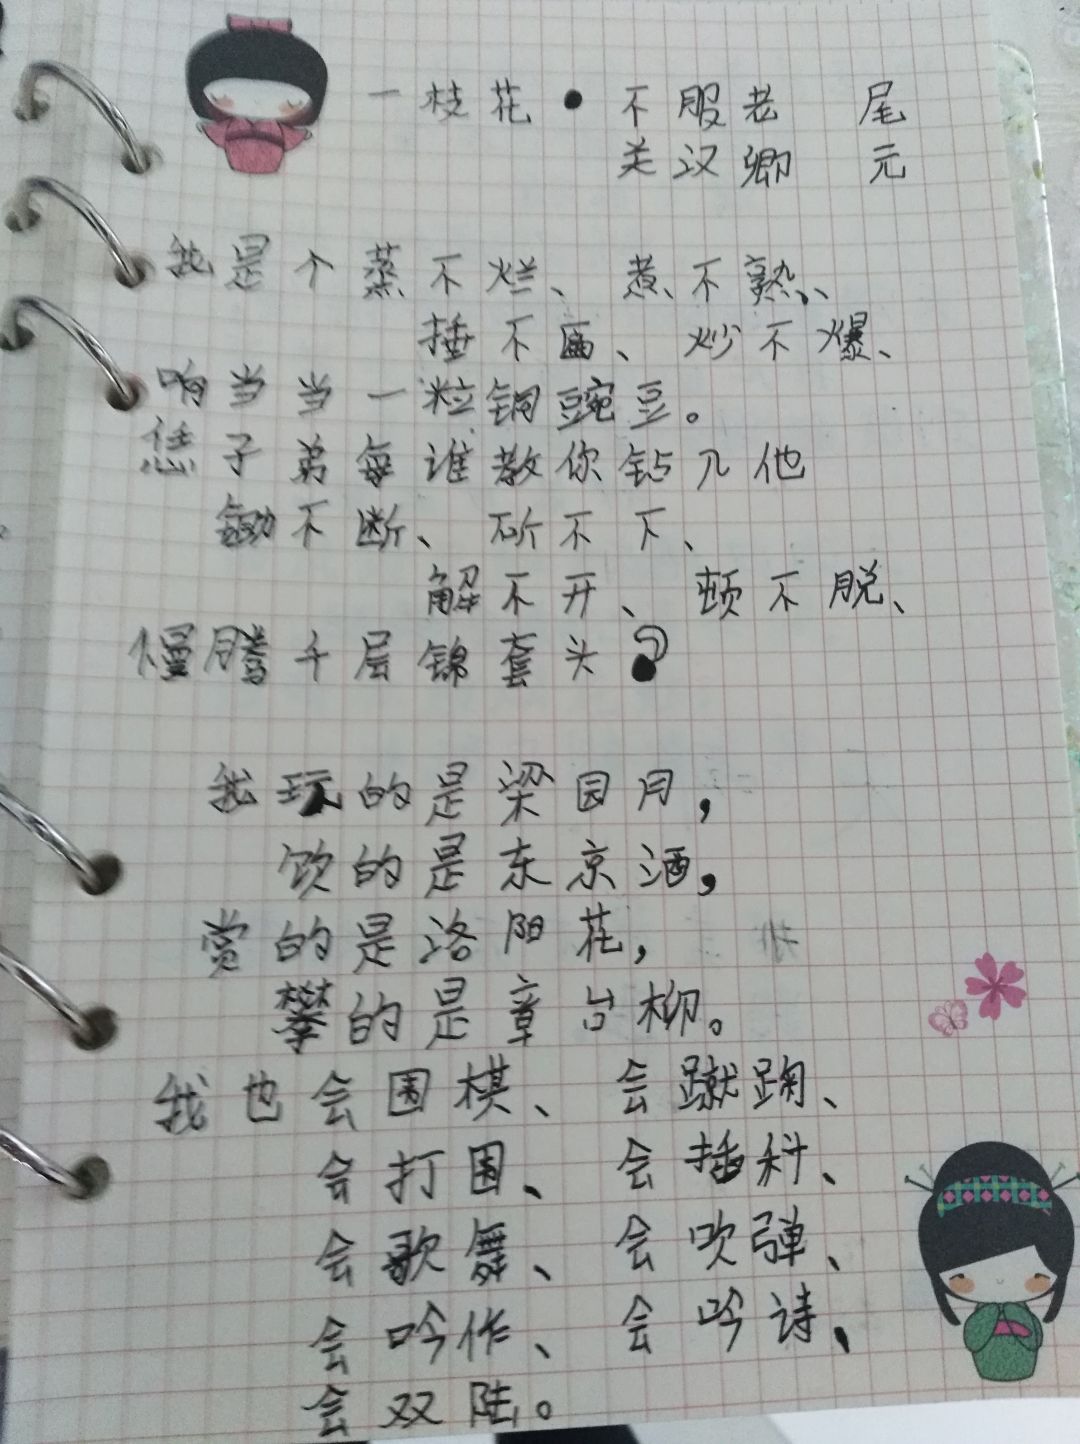 一枝花·不服老 尾
关汉卿 元
我是个蒸不烂、煮不熟、
捶不匾、炒不爆、
响当当一粒铜豌豆。
恁子弟每谁教你钻入他
锄不断、斫不下、
解不开、顿不脱、
慢腾千层锦套头
我玩的是梁园月，
饮的是东京酒，
赏的是洛阳花，
攀的是章台柳。
我也会围棋、会蹴踘、
会打围、会插科、
会歌舞、会吹弹、
会吟作、会吟诗、
会双陆。